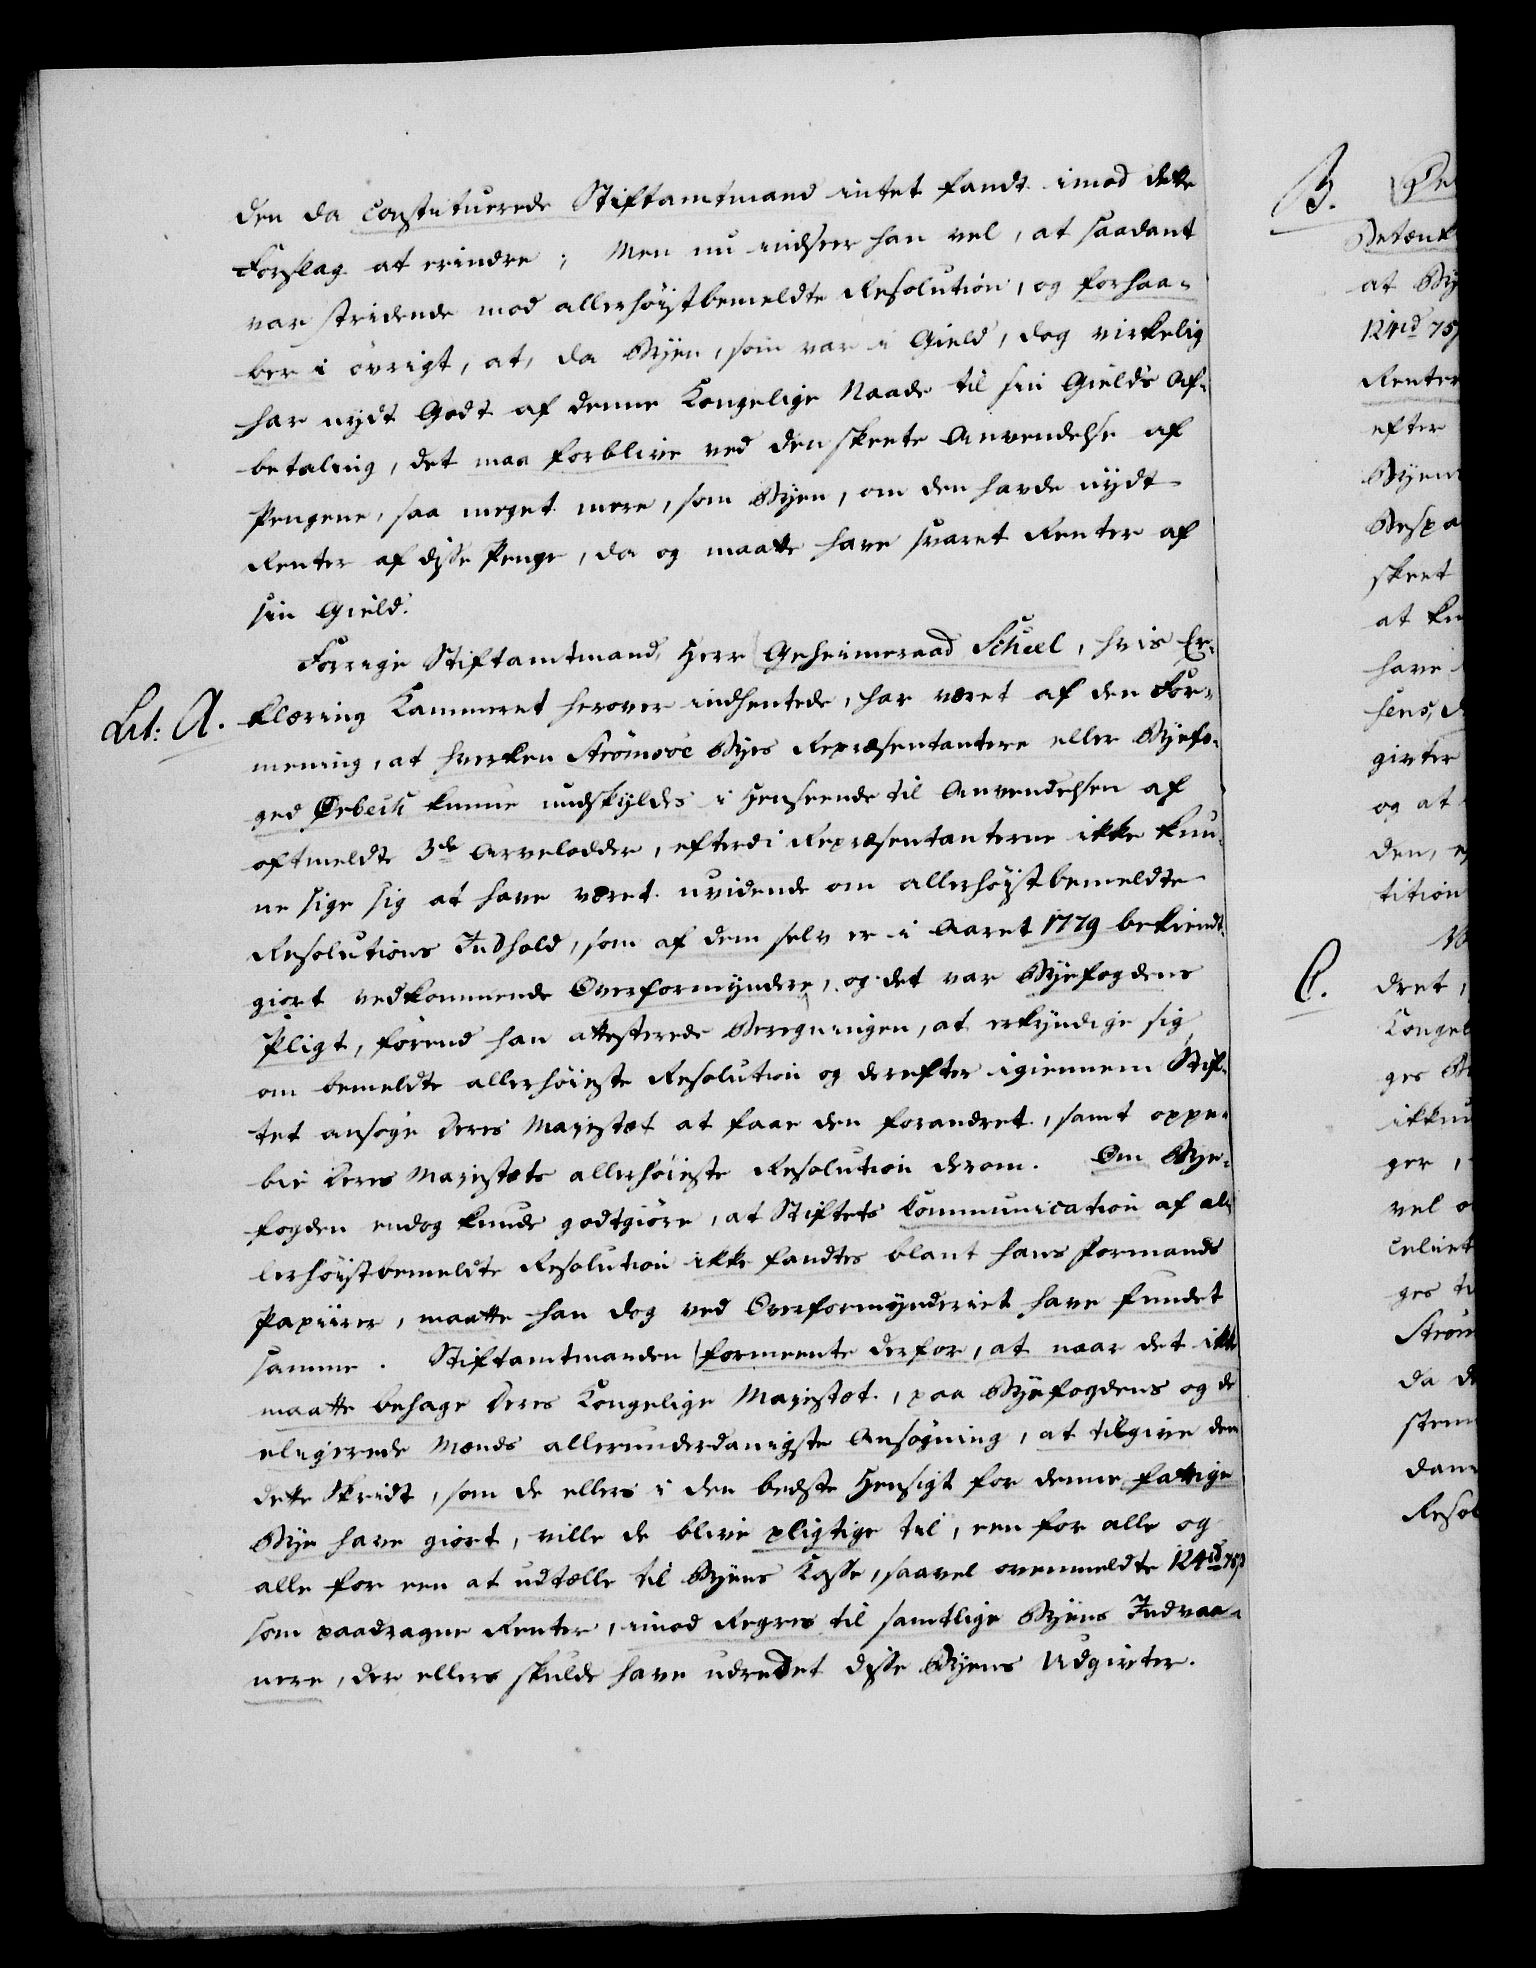 den da constituerede Stiftamtmand intet fandt imod dette
Forslag at erindre; Men nu indseer han vel, at saadant
var stridende mod allerhøistbemeldte Resolution, og forhaa-
ber i øvrigt, at, da Byen, som var i Gield, dog virkelig
har nydt Godt af denne Kongelige Naade til sin Gields Af-
betaling, det maa forblive ved den skeete Anvendelse af
Pengene, saa meget mere, som Byen, om den havde nydt
Renter af disse Penge, da og maatte have svaret Renter af
sin Gield.
Forrige Stiftamtmand Herr Geheimeraad Scheel, hvis Er-
Lit: A. klæring Kammeret herover indhentede, har været af den For-
mening, at hverken Strömsöe Byes Repræsentantere eller Byefo-
ged Ørbech kunne undskyldes i Henseende til Anvendelsen af
oftmeldte 3de Arvelodder, efterdi Repræsentanterne ikke kun-
ne sige sig at have været uvidende om allerhøistbemeldte
Resolutions Indhold, som af dem selv er i Aaret 1779 bekiendt-
giort vedkommende Overformyndere, og det var Byefogdens
Pligt, førend han attesterede Beregningen, at erkyndige sig
om bemeldte allerhøieste Resolution og derefter igiennem Stif-
tet ansøge Deres Majestæt at faae den forandret, samt oppe-
bie Deres Majestæts allerhøieste Resolution derom. Om Bye-
fogden endog kunde godtgiøre, at Stiftets Communication af al-
lerhøistbemeldte Resolution ikke fandtes blant hans Formands
Papiirer, maatte han dog ved Overformynderiet have fundet
samme. Stiftamtmanden formeente derfor, at naar det ikke
maatte behage Deres Kongelige Majestæt, paa Byefogdens og de
eligerede Mænds allerunderdanigste Ansøgning, at tilgive dem
dette Skridt, som de ellers i den bedste Hensigt for denne fattige
Bye have giort, ville de blive pligtige til, een for alle og
alle for een at udtælle til Byens Casse, saavel ovenmeldte 124 rd 75 s
som paadragne Renter, imod Regres til samtlige Byens Indvaa-
nere, der ellers skulde have udredet disse Byens Udgivter.
B.
Betænk
at By
124 rd 75
Renter
efter
Byens
Bespa
skeet
at ku
have
sens, d
givter
og at
den, e
tition
C. dret,
Kongel
ges
ikkun
ger,
vel o
celiet
ges ti
Strøm
da de
stem
dan
Resol